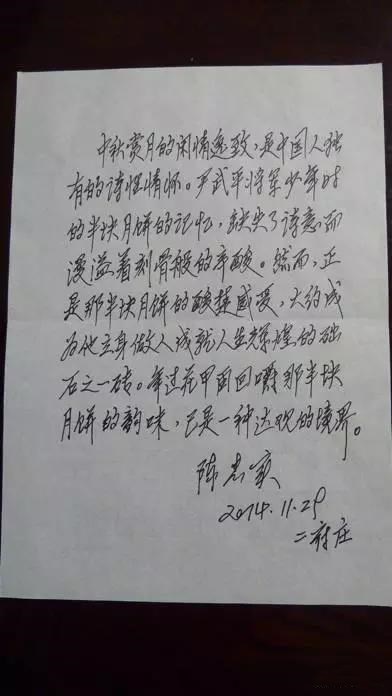 中秋赏月的闲情逸致，是中国人独
有的诗性情怀。严武平将军少年时
的半块月饼的记忆，缺失了诗意而
漫溢着刻骨般的辛酸。然而，正
是那半块月饼的酸楚感受，大约成
为他立身做人成就人生辉煌的础
石之一砖。年过花甲回嚼那半块
月饼的韵味，已是一种达观的境界。
陈忠实
2014.11.29
二府庄